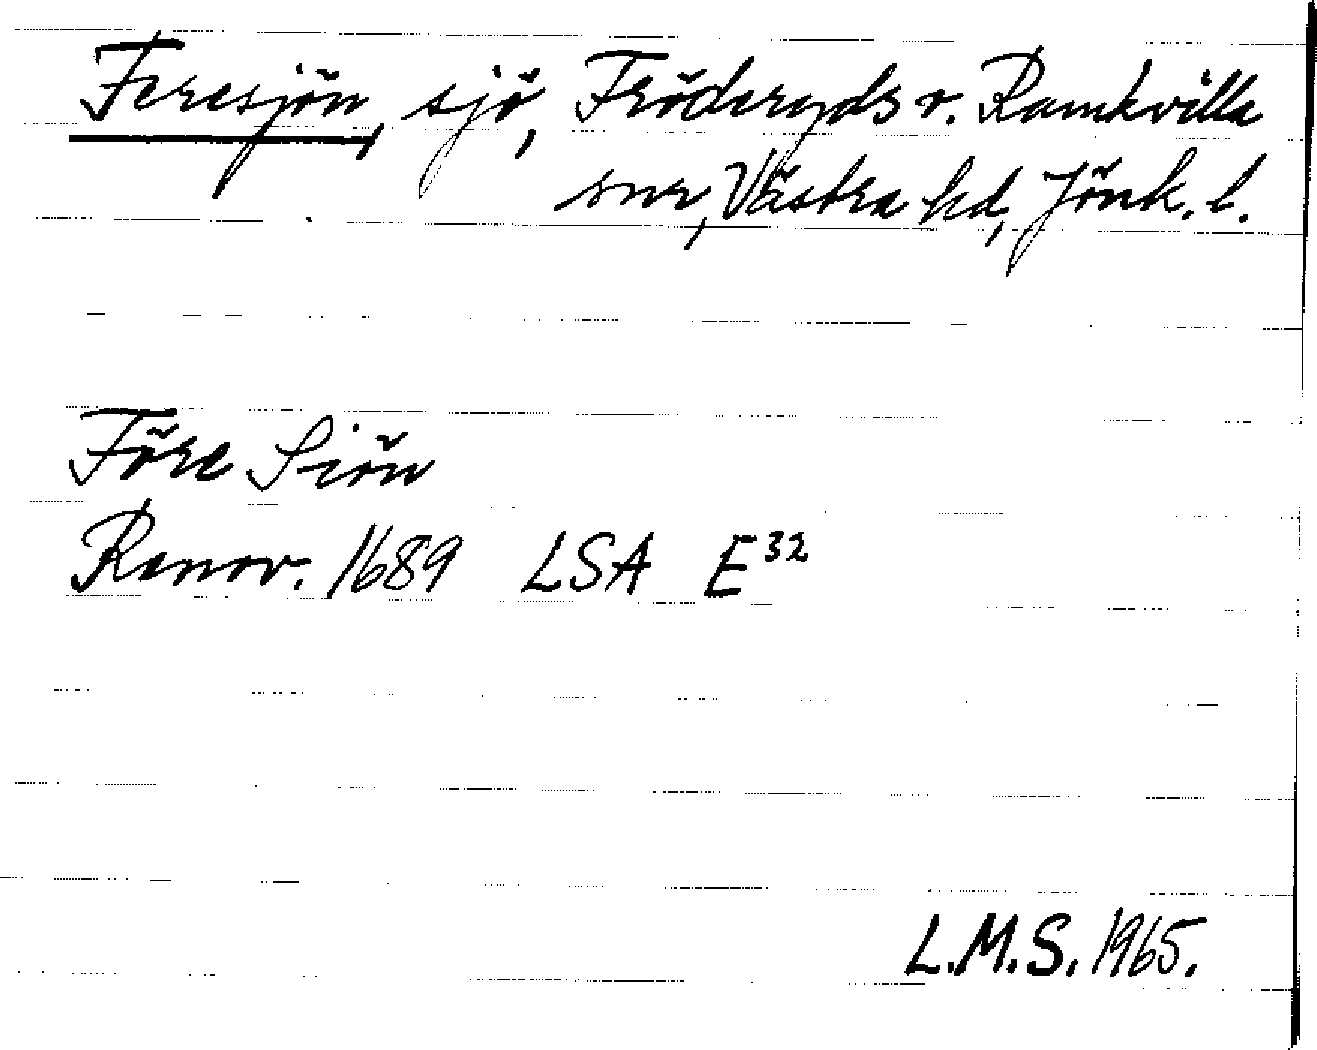 Feresjön, sjö, Fröderyds o. Ramkvilla
snr, Västra hd, Jönk. l.
Före Siön
Renov. 1689 LSA E32
L.M.S. 1965.